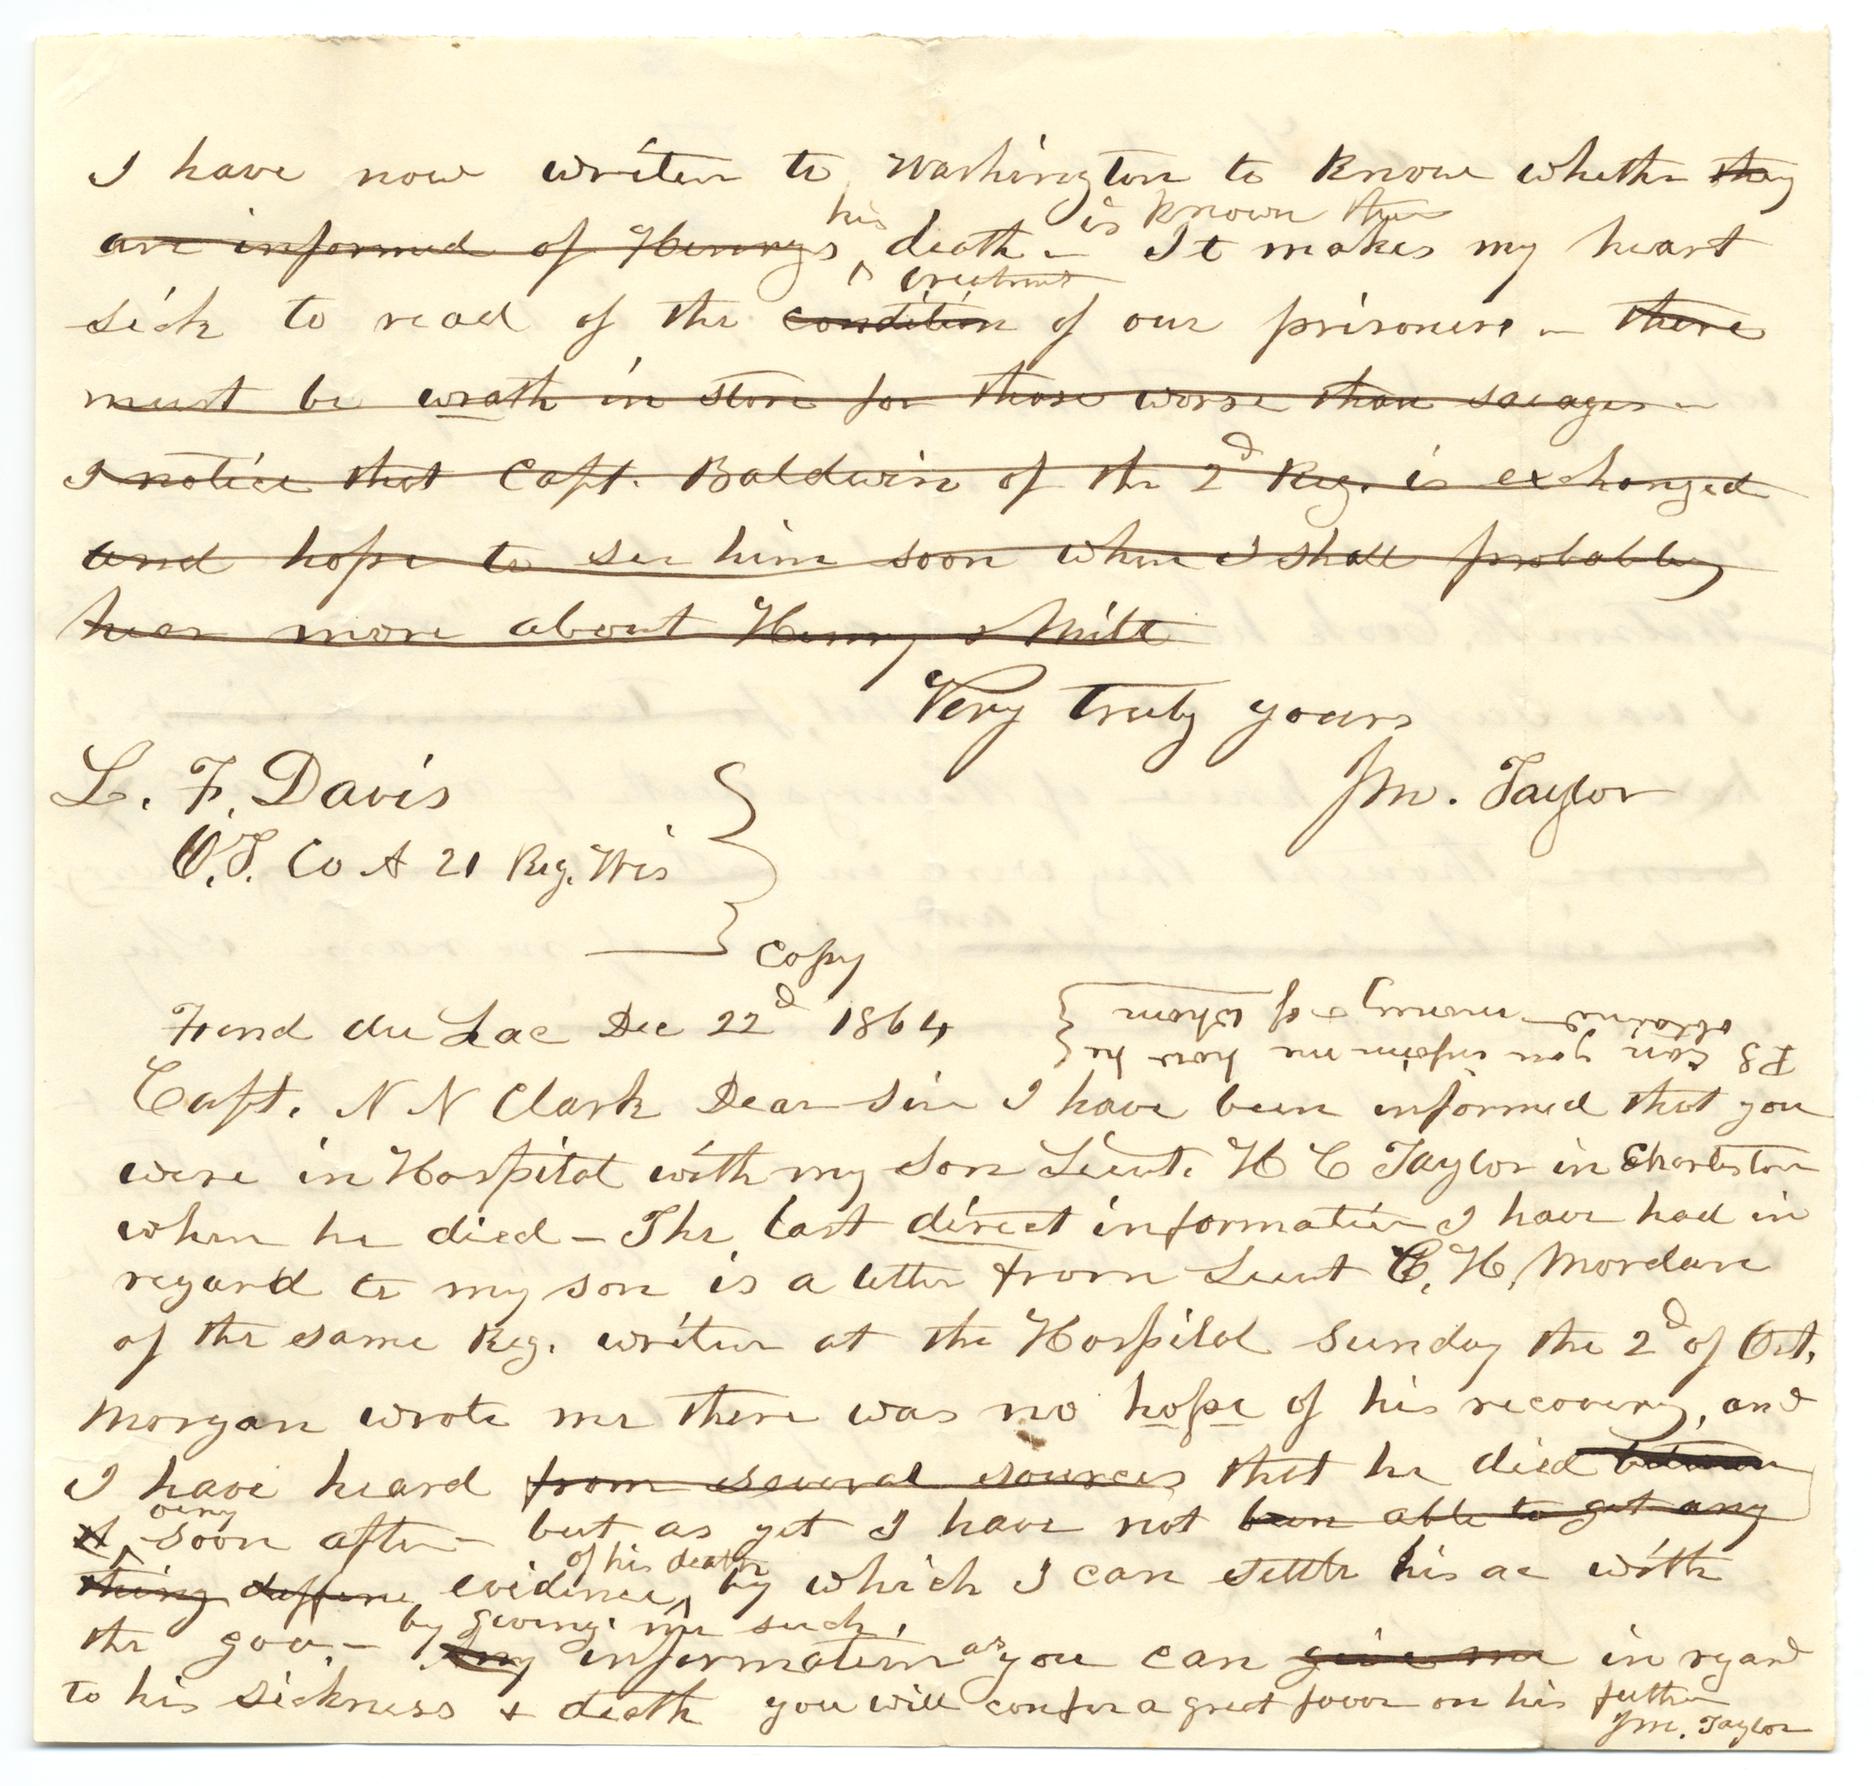 I have now writen to Washington to know whether they
are informed of Henrys his death is known there - It makes my heart
sick to read of the condition treatment of our prisoners - there
must be wrath in store for those worse than savages -
I notice that Capt. Baldwin of the 2d Reg. is exchanged
and hope to see him soon when I shall probably
hear more about Henry & Milt
Very truly yours
J M. Taylor
L. F. Davis
O.S. Co A 21 Reg. Wis
Copy
Fond du Lac Dec 22d 1864
PS Can you inform me how he
obtained money & of whom
Capt. N N Clark Dear Sir I have been informed that you
were in Hospital with my son Lieut. H C Taylor in Charleston
when he died - The last direct information I have had in
regard to my son is a letter from Lieut C. H. Mordan
of the same Reg. writen at the Hospital Sunday the 2d of Oct.
Morgan wrote me there was no hope of his recovery, and
I have heard from several sources that he died between
& very soon after - but as yet I have not been able to get any
thing evidence of his death by which I can settle his ac with
the gov. - by giving me such Any information as you can give me in regard
to his sickness & death you will confer a great favor on his father
J M. Taylor